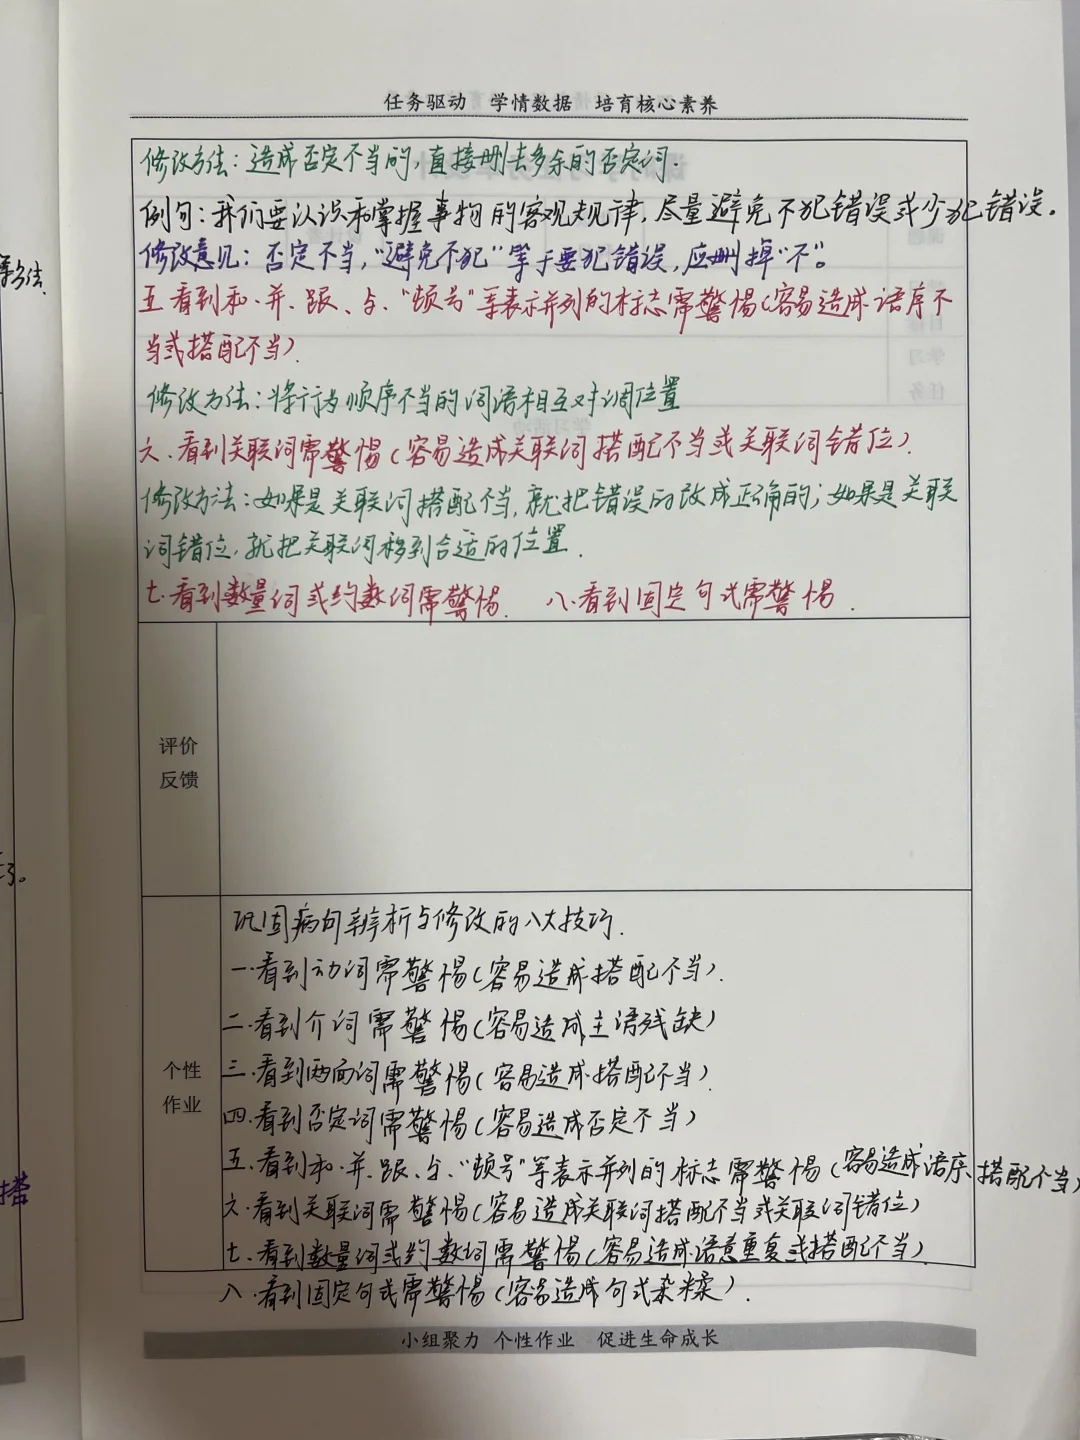 任务驱动 学情数据 培育核心素养
修改方法：造成否定不当的，直接删去多余的否定词．
例句：我们要认识和掌握事物的客观规律，尽量避免不犯错误或少犯错误。
修改意见：否定不当，“避免不犯”等于要犯错误，应删掉“不”。
五．看到和、并、跟、与、“顿号”等表示并列的标志需警惕（容易造成语序不
当或搭配不当）．
修改方法：将行为顺序不当的词语相互对调位置
六、看到关联词需警惕（容易造成关联词搭配不当或关联词错位）．
修改方法：如果是关联词搭配不当，就把错误的改成正确的；如果是关联
词错位，就把关联词移到合适的位置．
七．看到数量词或约数词需警惕． 八．看到固定句式需警惕．
评价
反馈
巩固病句辨析与修改的八大技巧．
一．看到动词需警惕（容易造成搭配不当）．
二．看到介词需警惕（容易造成主语残缺）
个性
作业
三．看到两面词需警惕（容易造成搭配不当）．
四．看到否定词需警惕（容易造成否定不当）
五．看到和、并、跟、与、“顿号”等表示并列的标志需警惕（容易造成语序、搭配不当）
六．看到关联词需警惕（容易造成关联词搭配不当或关联词错位）
七．看到数量词或约数词需警惕（容易造成语意重复或搭配不当）．
八．看到固定句式需警惕（容易造成句式杂糅）．
小组聚力 个性作业 促进生命成长